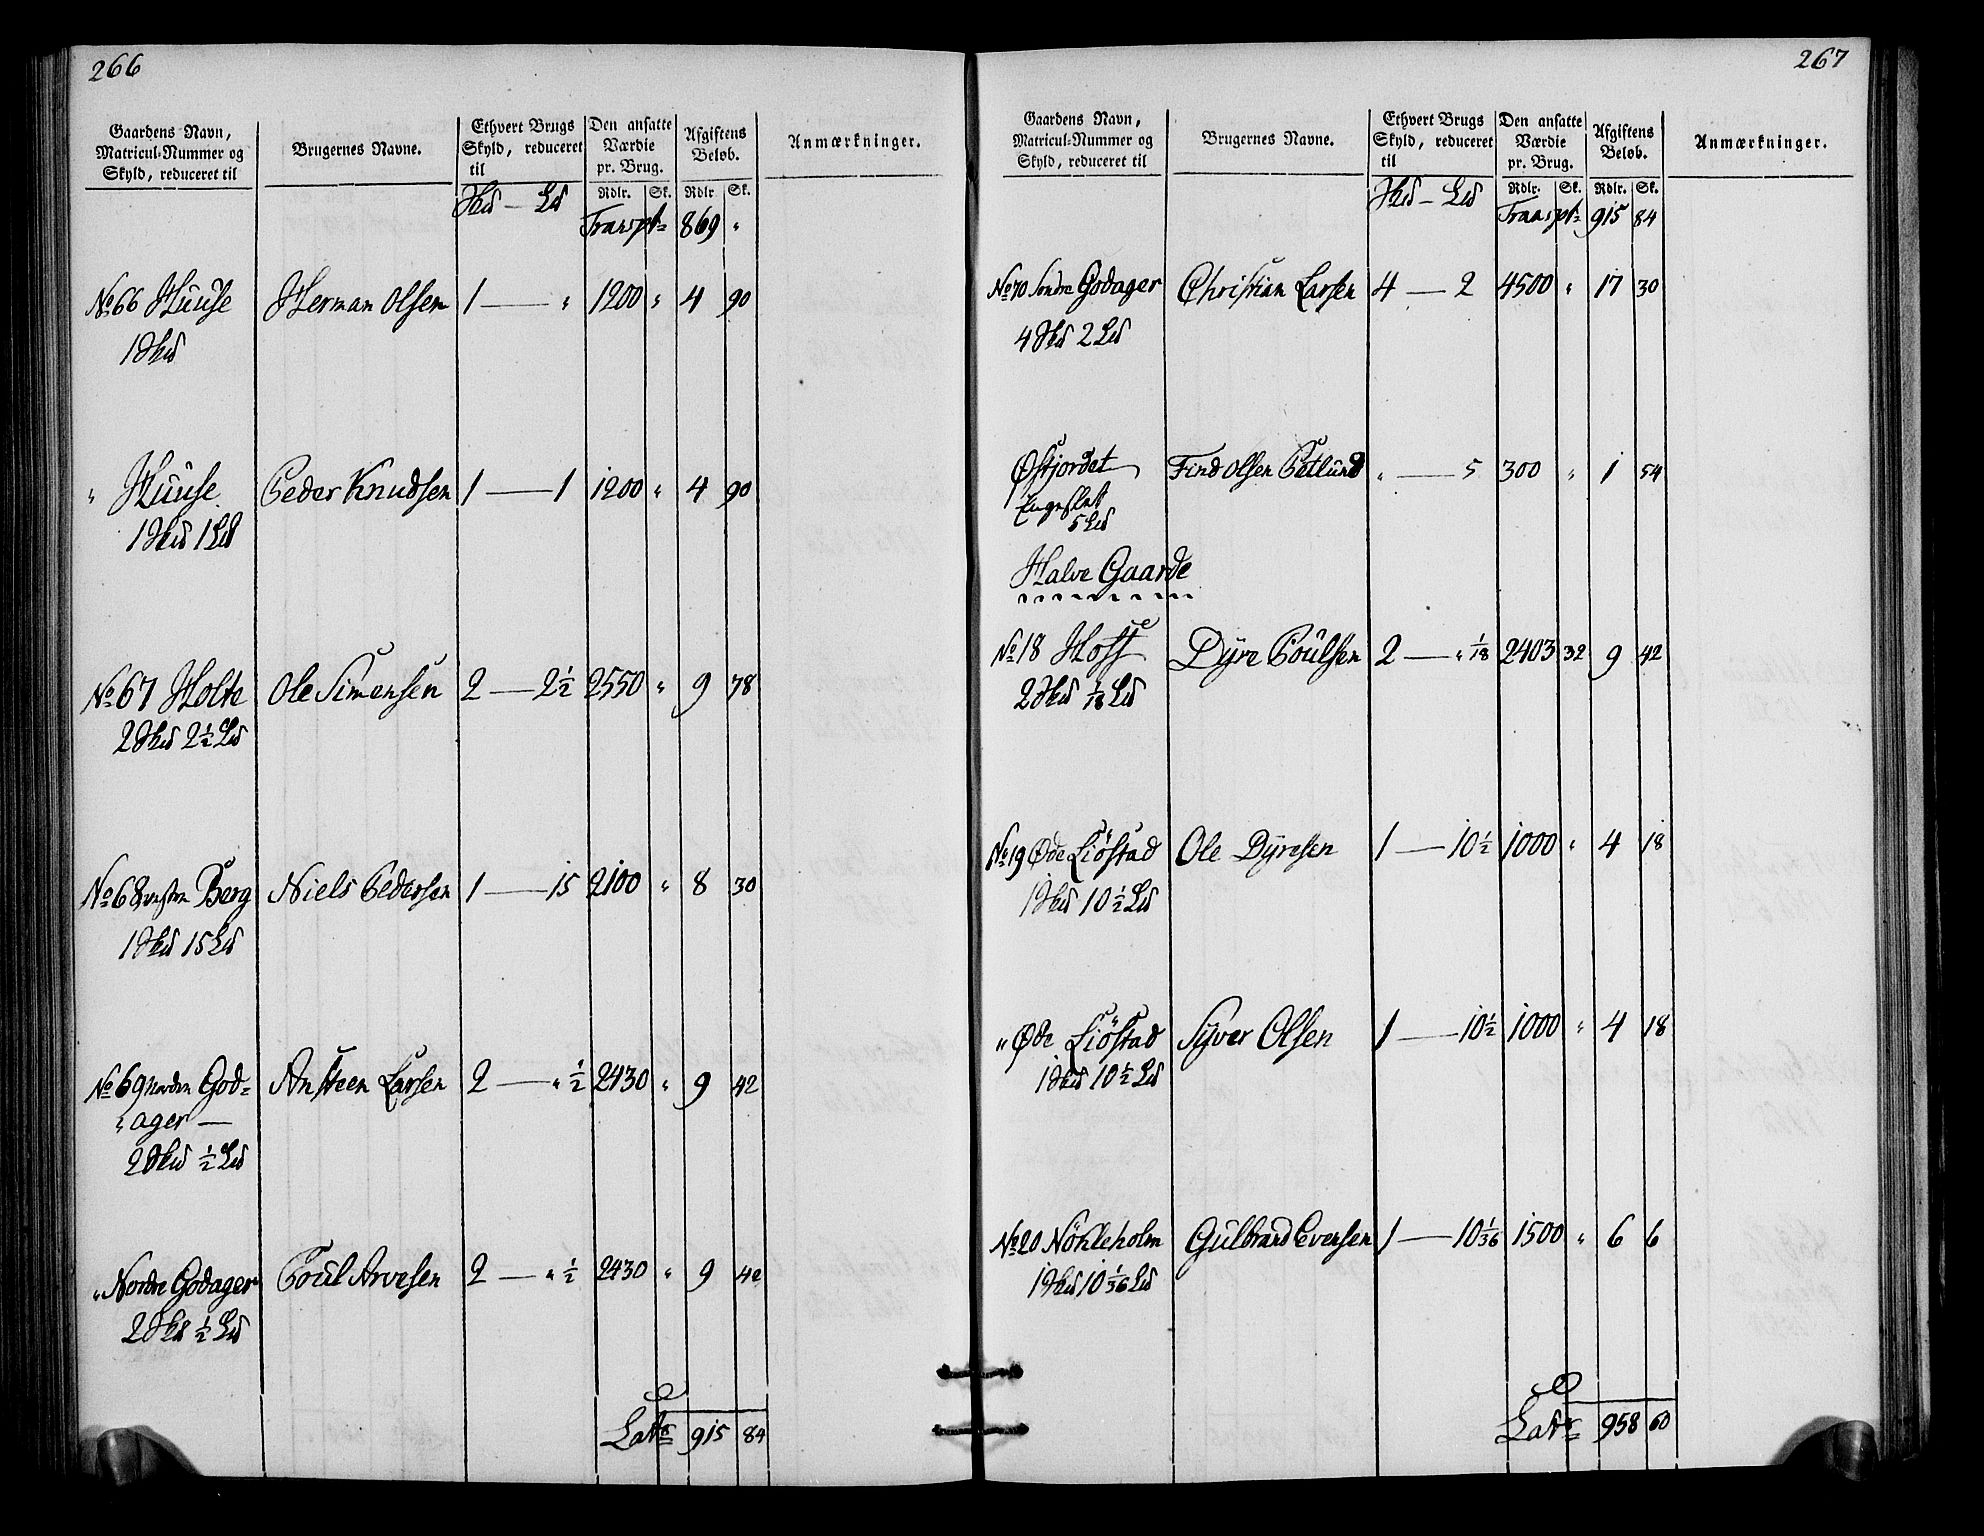 266
Gaardens Navn, Matricul-Nummer og Skyld, reduceret til
Brugernes Navne.
Ethvert Brugs Skyld, reduceret til
Den ansatte Værdie pr. Brug.
Afgiftens Beløb.
Anmærkninger.
Hud — Ld Rdlr. Sk. Rdlr Sk.
Transpt 869 "
No 66 Huuse Herman Olsen 1 — " 1200 " 4 90
1 Hud
" Huuse Peder Knudsen 1 — 1 1200 " 4 90
1 Hud 1 Ld
No 67 Holte Ole Simensen 2 — 2 1/2 2550 " 9 78
2 Hud 2 1/2 Ld
No 68 vestre Berg Niels Pedersen 1 — 15 2100 " 8 30
1 Hud 15 Ld
No 69 Nordre God= Ansteen Larsen 2 — " 1/2 2430 " 9 42
" ager —
2 Hud 1/2 Ld
" Nordre Godager Poul Arvesen 2 — " 1/2 2430 " 9 42
2 Hud 1/2 Ld
Lats 915 84
267
Gaardens Navn, Matricul-Nummer og Skyld, reduceret til
Brugernes Navne.
Ethvert Brugs Skyld, reduceret til
Den ansatte Værdie pr. Brug.
Afgiftens Beløb.
Anmærkninger.
Hud — Ld Rdlr. Sk. Rdlr. Sk.
Transpt 915 84
No 70 Søndre Godager Christian Larsen 4 — 2 4500 " 17 30
4 Hud 2 Ld
Østjordet Find Olsen Tetlund " — 5 300 " 1 54
Engeslet
5 Ld
Halve Gaarde
No 18 Hoff Dyre Poulsen 2 — " 1/18 2403 32 9 42
2 Hud 1/18 Ld
No 19 Øde Liøstad Ole Dyresen 1 — 10 1/2 1000 " 4 18
1 Hud 10 1/2 Ld
" Øde Liøstad Syver Olsen 1 — 10 1/2 1000 " 4 18
1 Hud 10 1/2 Ld
No 20 Nöhleholm Gulbrand Evensen 1 — 10 1/36 1500 " 6 6
1 Hud 10 1/36 Ld
Lats 958 60